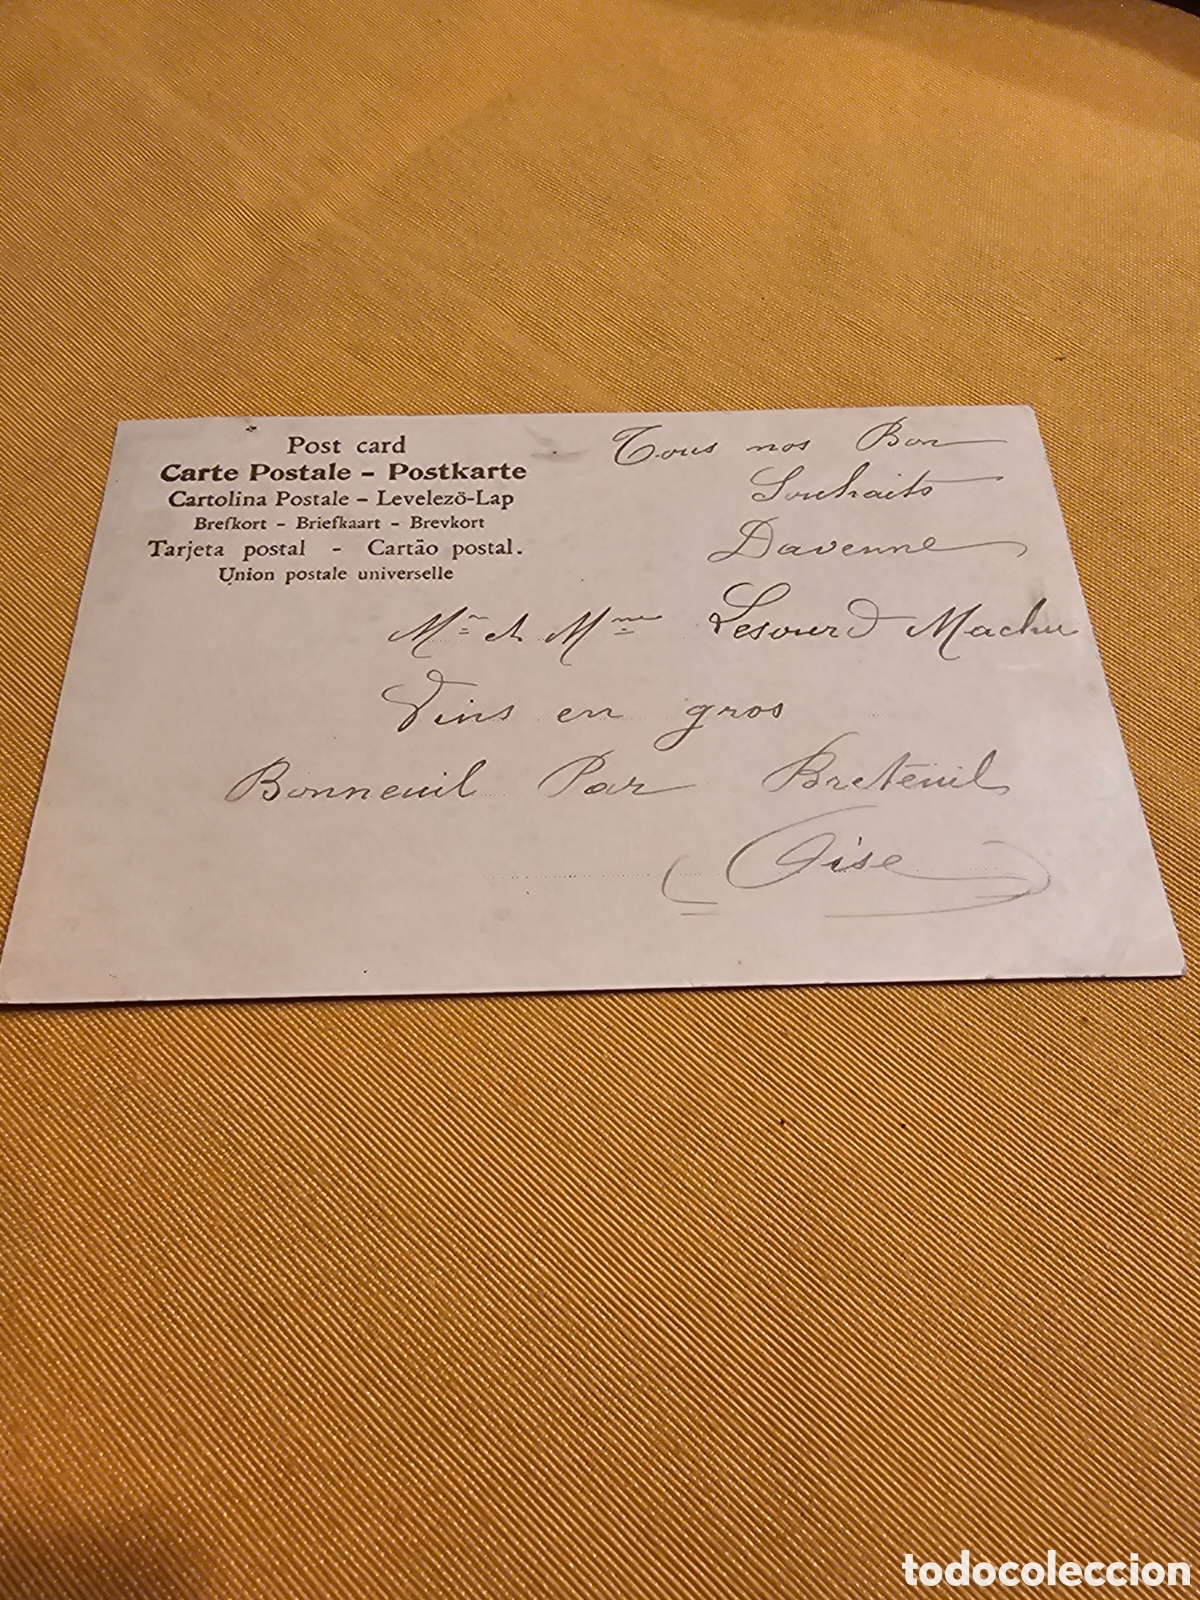 Post card
Carte Postale – Postkarte
Cartolina Postale – Levelezö-Lap
Brefkort – Briefkaart – Brevkort
Tarjeta postal – Cartão postal.
Union postale universelle
Tous nos Bon
Souhaits
Davenne
Mr et Mme Lesourd Machu
Vins en gros
Bonneuil Par Breteuil
Oise
todocoleccion